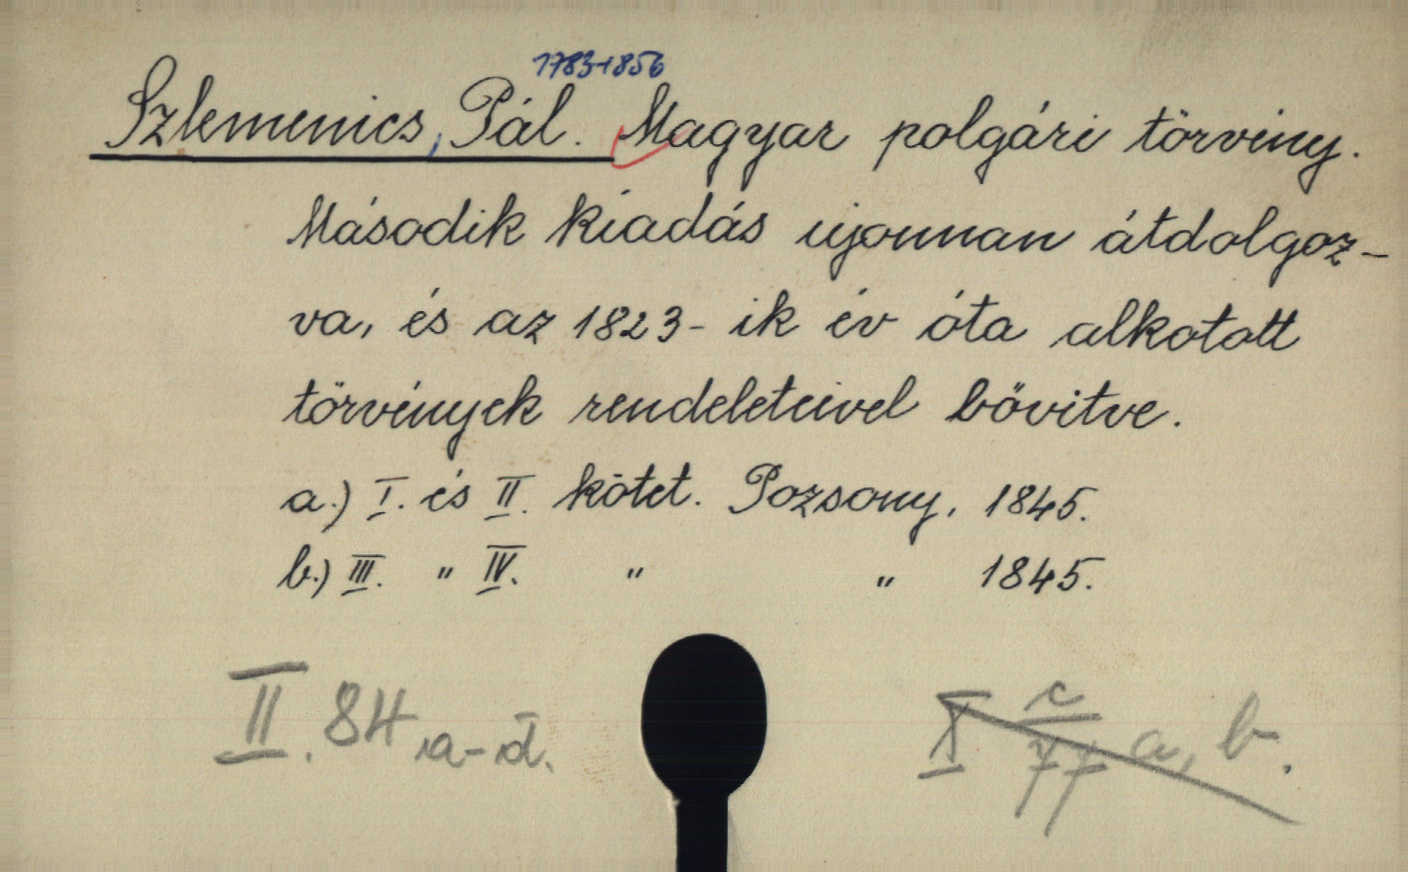 1783-1856
Szlemenics, Pál. Magyar polgári törvény.
Második kiadás ujonnan átdolgoz-
va, és az 1823-ik év óta alkotott
törvények rendeleteivel bővitve.
a.) I. és II. kötet. Pozsony, 1845.
b.) III. " IV. " " 1845.
II. 84 a-d.
X c/77 a, b.